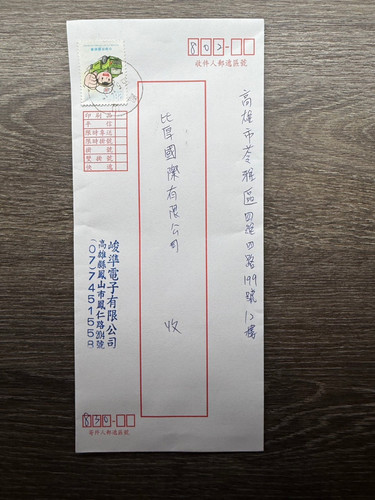 802-
收件人郵遞區號
高雄市苓雅區四維四路199號12樓
比厚國際有限公司 收
印刷品
平信
限時專送
限時掛號
掛號
雙掛號
快遞
峻準電子有限公司
高雄縣鳳山市鳳仁路
(07)7451558
830-
寄件人郵遞區號